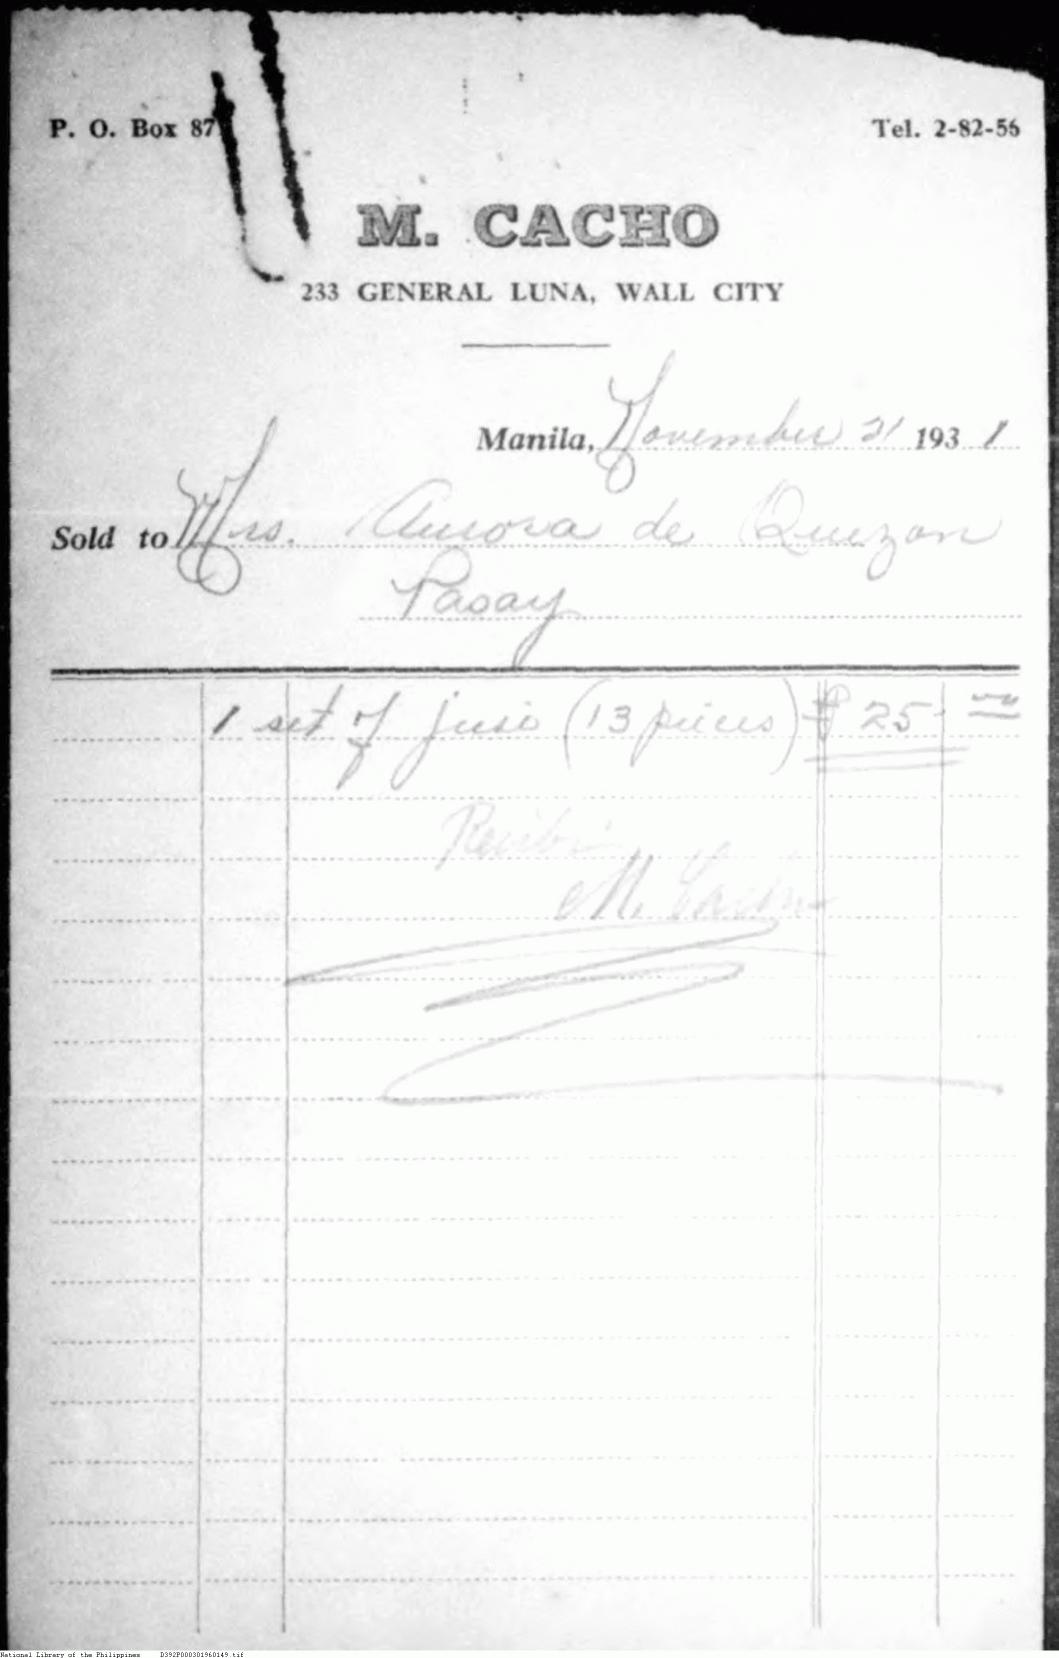 P. O. Box 87
Tel. 2-82-56
M. CACHO
233 GENERAL LUNA, WALL CITY
Manila, November 21 1931
Sold to Mrs. Aurora de Quezon
Pasay
1 set of jusi (13 pieces) ₱ 25
Recibi
M. Cacho
National Library of the Philippines D392P000301960149.tif